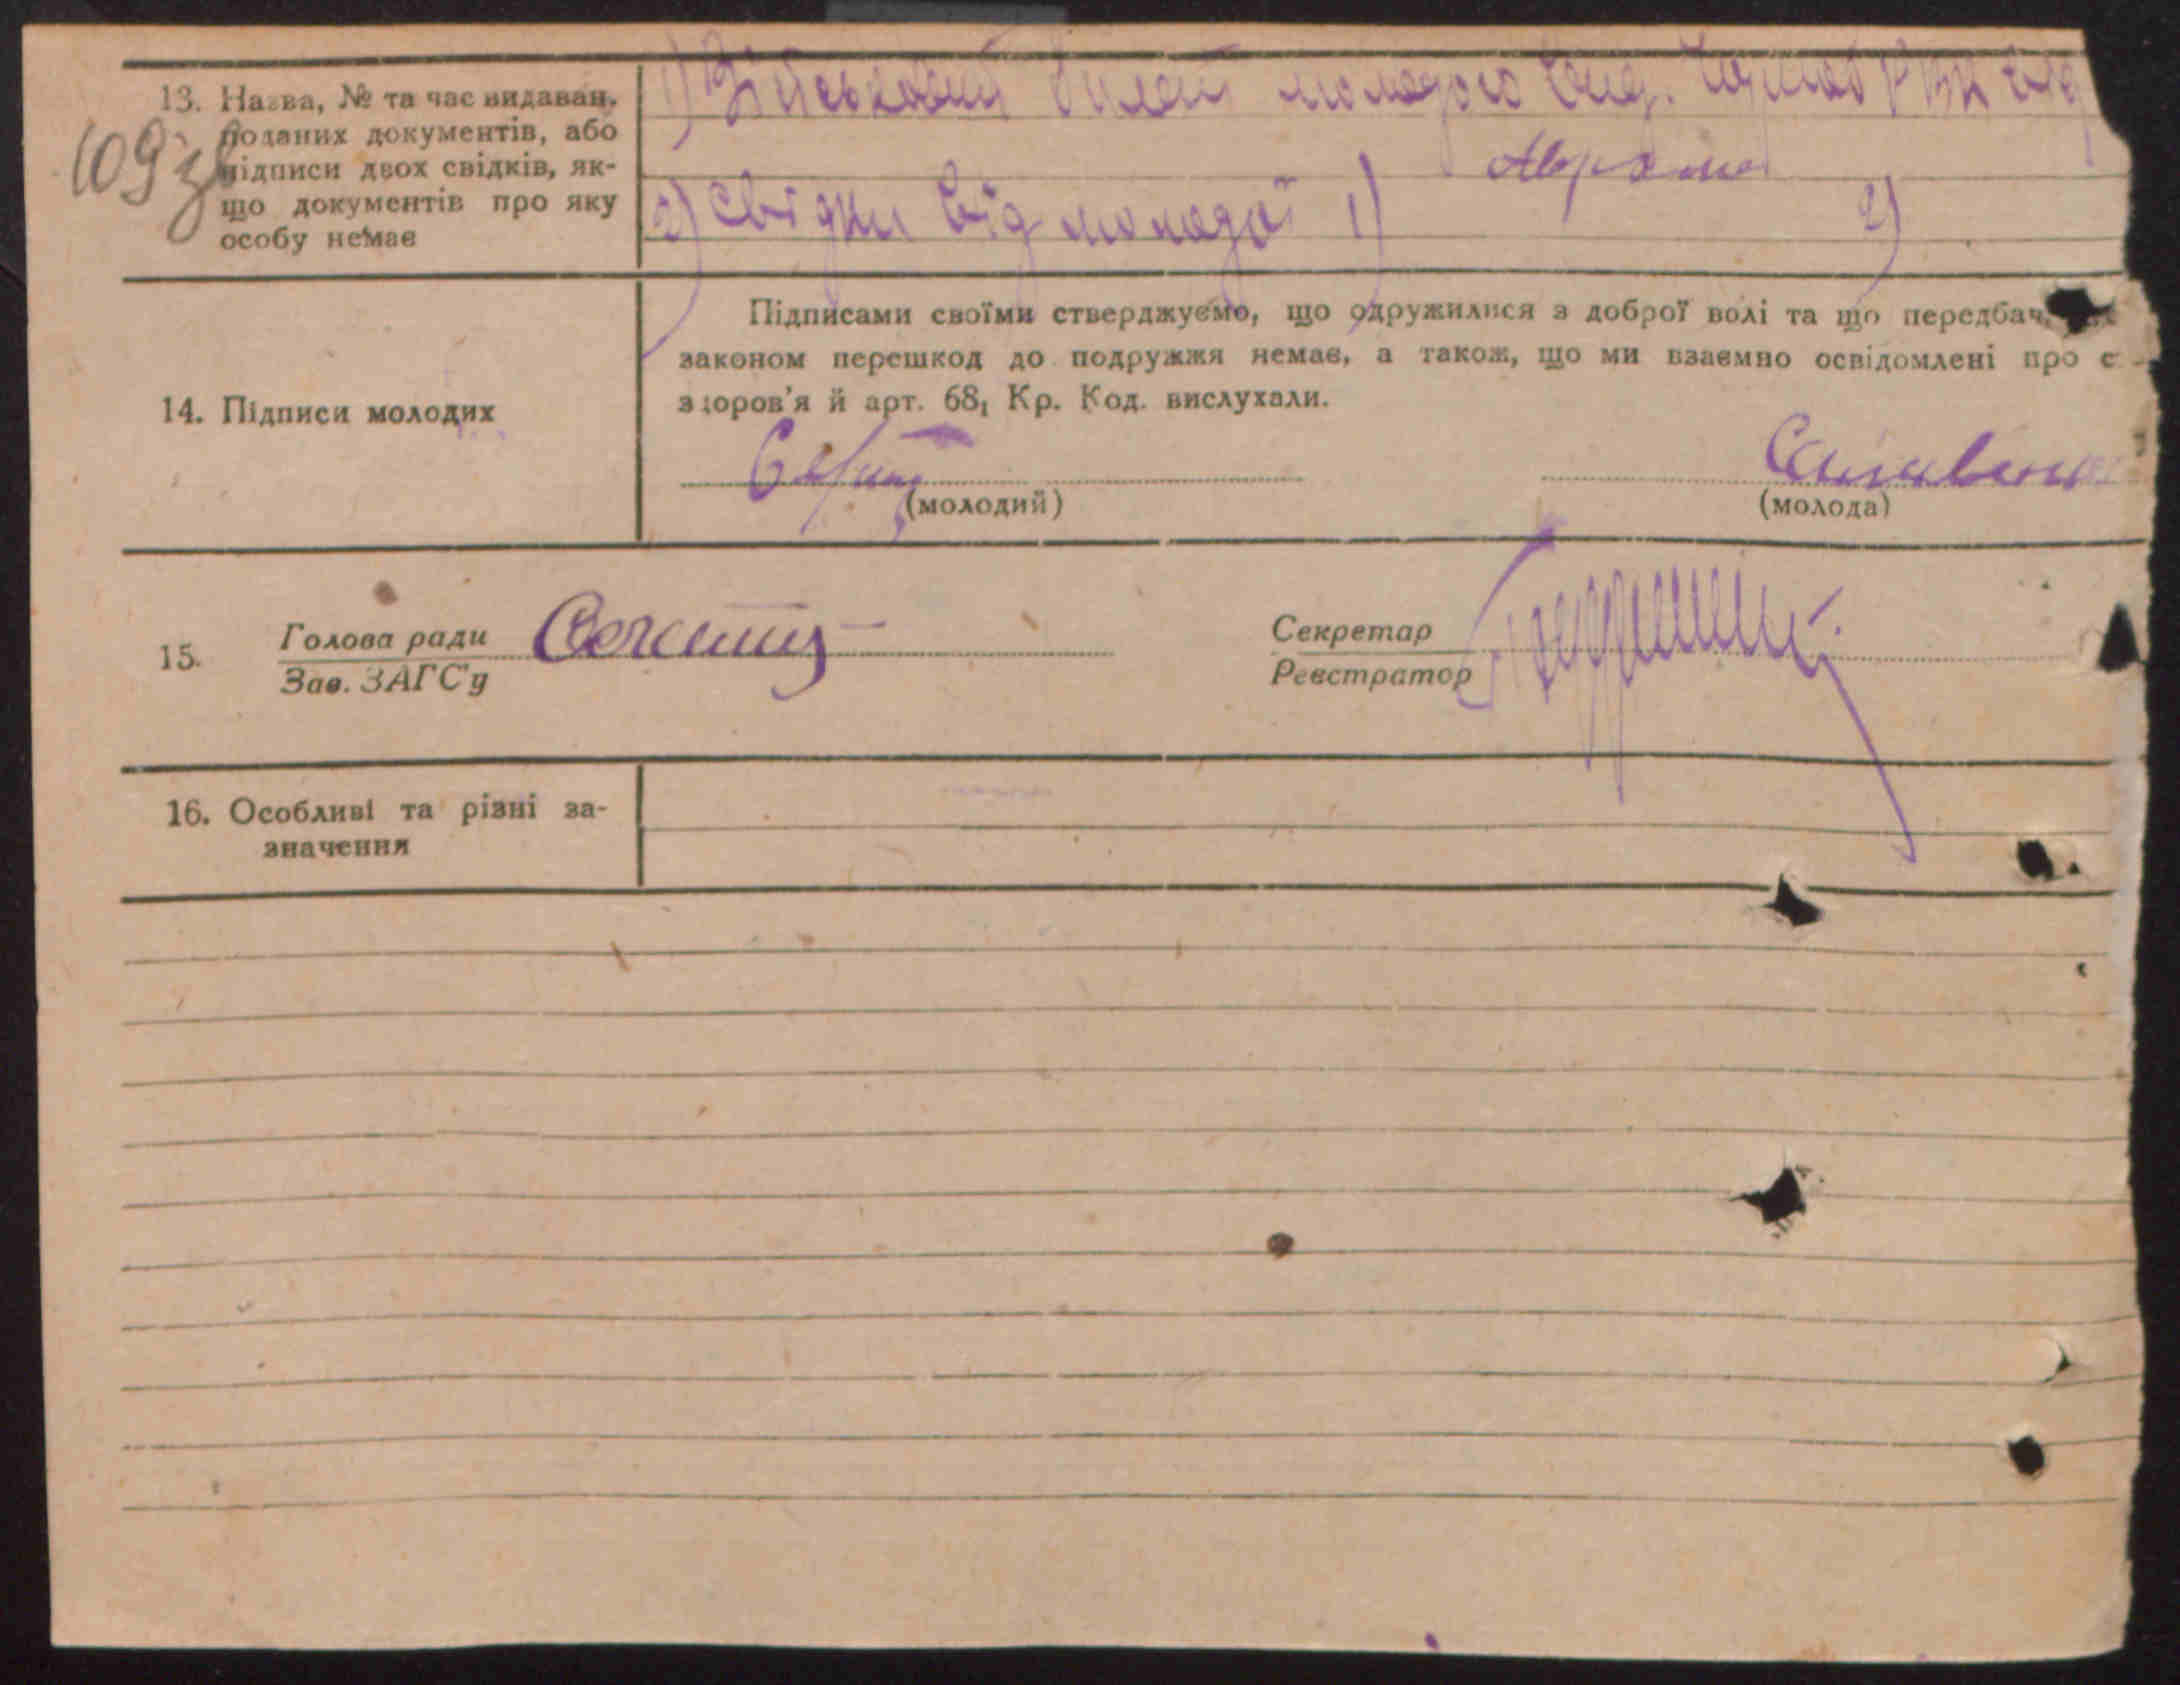 13. Назва, № та час видаван.
поданих документів, або
підписи двох свідків, як-
що документів про яку
особу немає
109 зв
1) Військовий білет молодого
2) Свідки від молодої 1) 2)
14. Підписи молодих
Підписами своїми стверджуємо, що одружилися з доброї волі та що передбач.
законом перешкод до подружжя немає, а також, що ми взаємно освідомлені про с
здоров'я й арт. 68₁ Кр. Код. вислухали.
(молодий)
(молода)
15.
Голова ради
Зав. ЗАГС'у
Секретар
Реєстратор
16. Особливі та різні за-
значення